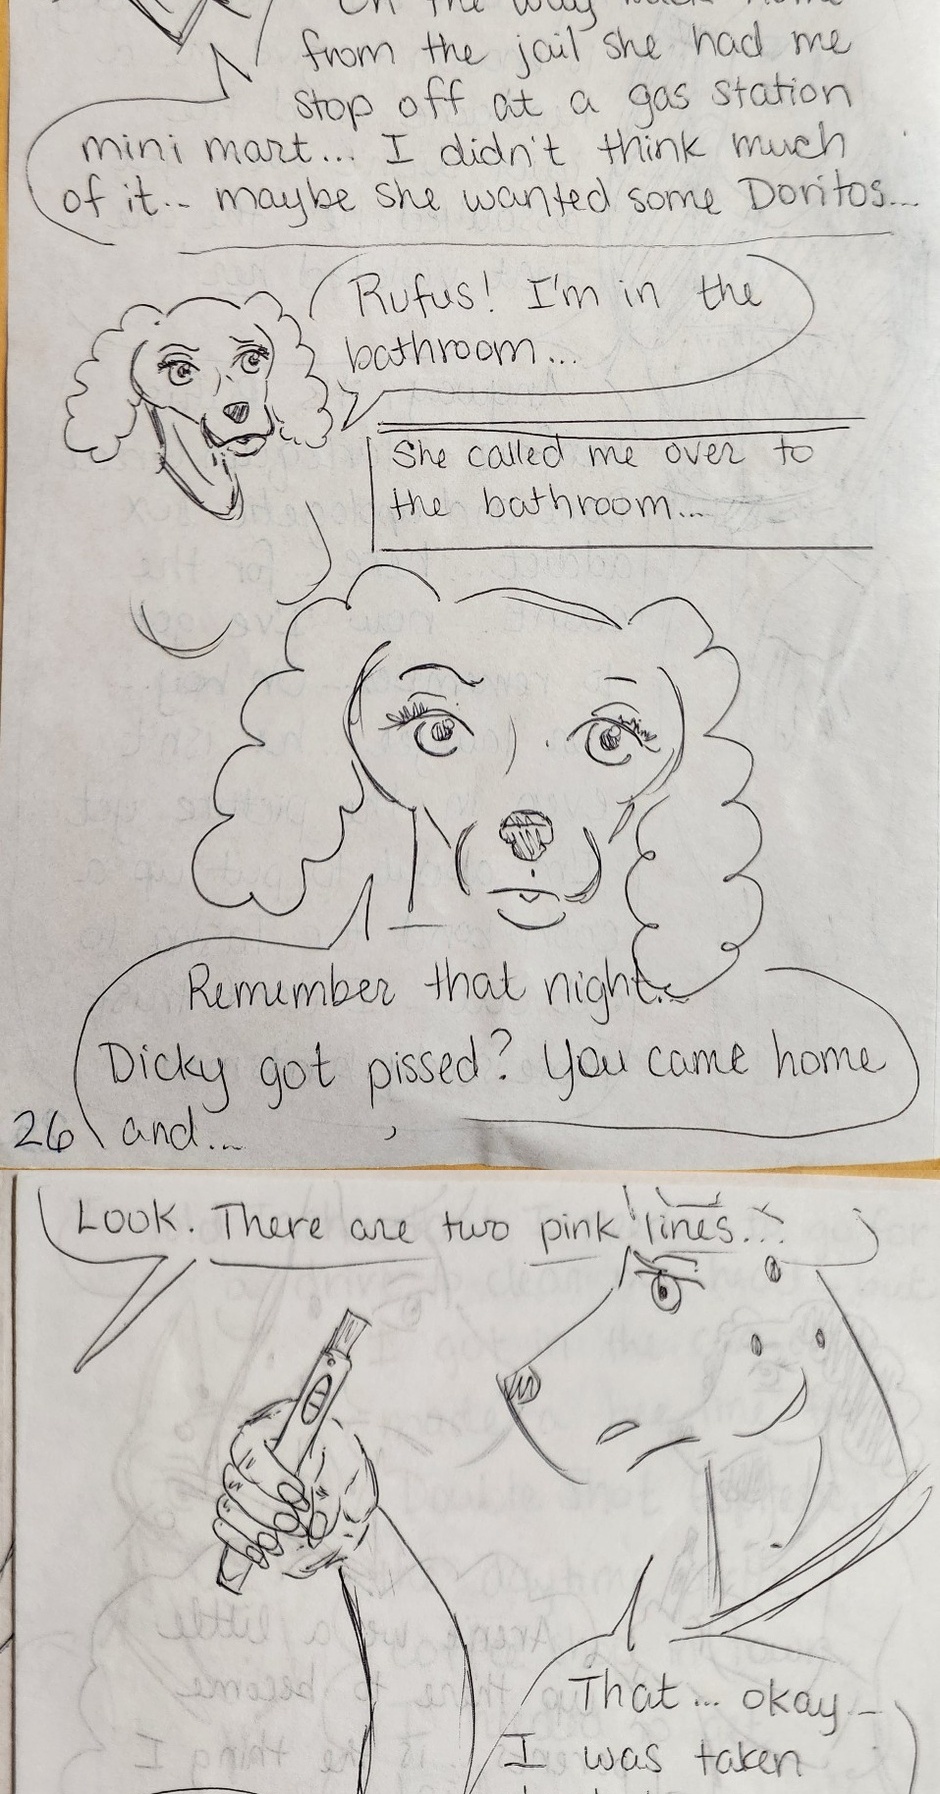 On the way back home
from the jail she had me
stop off at a gas station
mini mart... I didn't think much
of it.. maybe she wanted some Doritos...
Rufus! I'm in the
bathroom...
She called me over to
the bathroom...
Remember that night..
Dicky got pissed? You came home
26 and...
Look. There are two pink lines...
That... okay-
I was taken